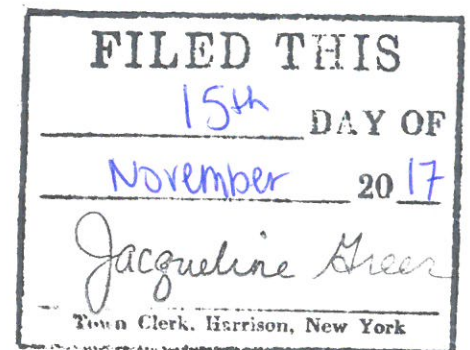 FILED THIS
15th DAY OF
November 20 17
Jacqueline Greer
Town Clerk. Harrison, New York